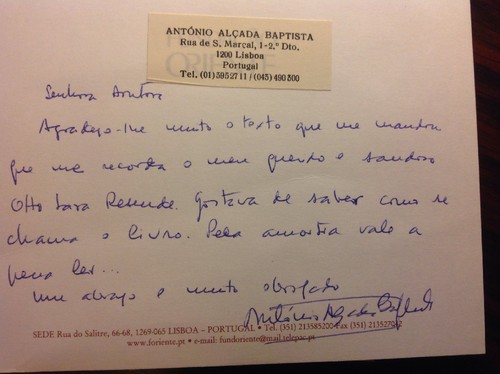 ANTÓNIO ALÇADA BAPTISTA
Rua de S. Marçal, 1-2.º Dto.
1200 Lisboa
Portugal
Tel. (01) 3952711 / (045) 490 300
ORIENTE
Senhora Doutora
Agradeço-lhe muito o texto que me mandou
que me recorda o meu querido e saudoso
Otto Lara Resende. Gostava de saber como se
chama o livro. Pela amostra vale a
pena ler...
Um abraço e muito obrigado
António Alçada Baptista
SEDE Rua do Salitre, 66-68, 1269-065 LISBOA – PORTUGAL • Tel. (351) 213585200 Fax (351) 2135270
www.foriente.pt • e-mail: fundoriente@mail.telepac.pt